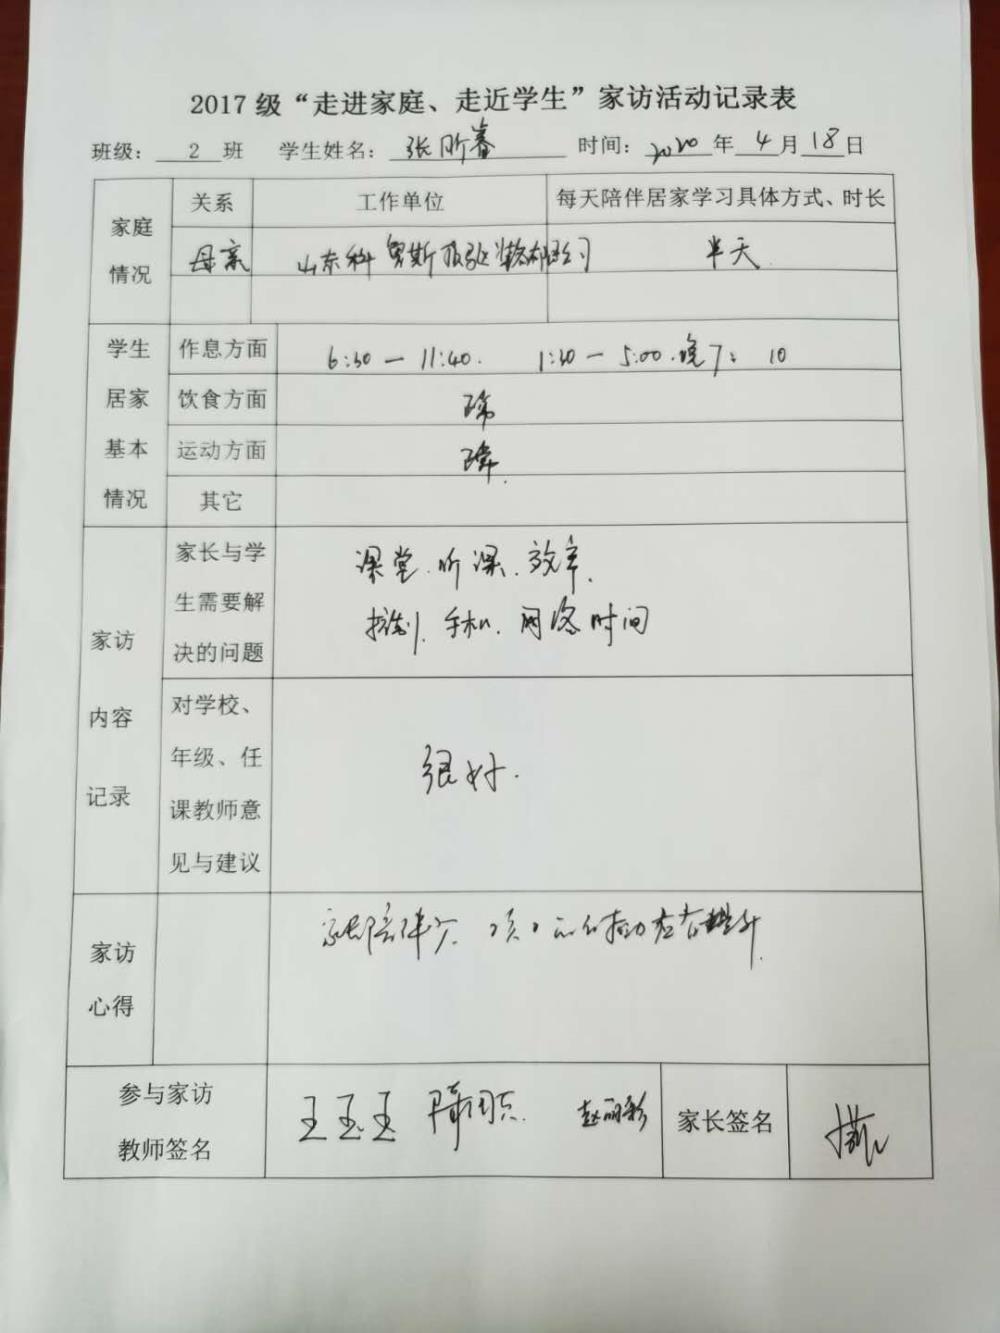 2017 级“走进家庭、走近学生”家访活动记录表
班级： 2 班 学生姓名： 张昕睿 时间： 2020 年 4 月 18 日
家庭情况
关系 工作单位 每天陪伴居家学习具体方式、时长
母亲 山东科 半天
学生居家基本情况
作息方面 6:30 — 11:40. 1:30 — 5:00 .晚7: 10
饮食方面 正常
运动方面 正常.
其它
家访内容记录
家长与学生需要解决的问题
课堂.听课.效率.
控制.手机.网络时间
对学校、年级、任课教师意见与建议
很好.
家访心得
参与家访教师签名
王玉玉 赵丽彩
家长签名